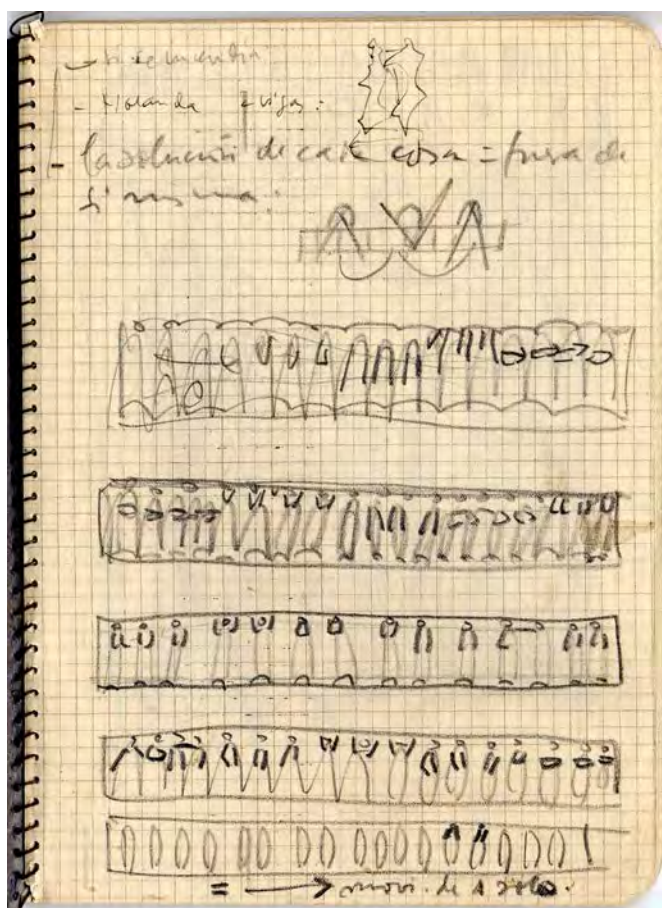 - Holanda 2 vigas:
- la solución de cada cosa = fuera de
sí misma:
= → movi. de 1 solo.